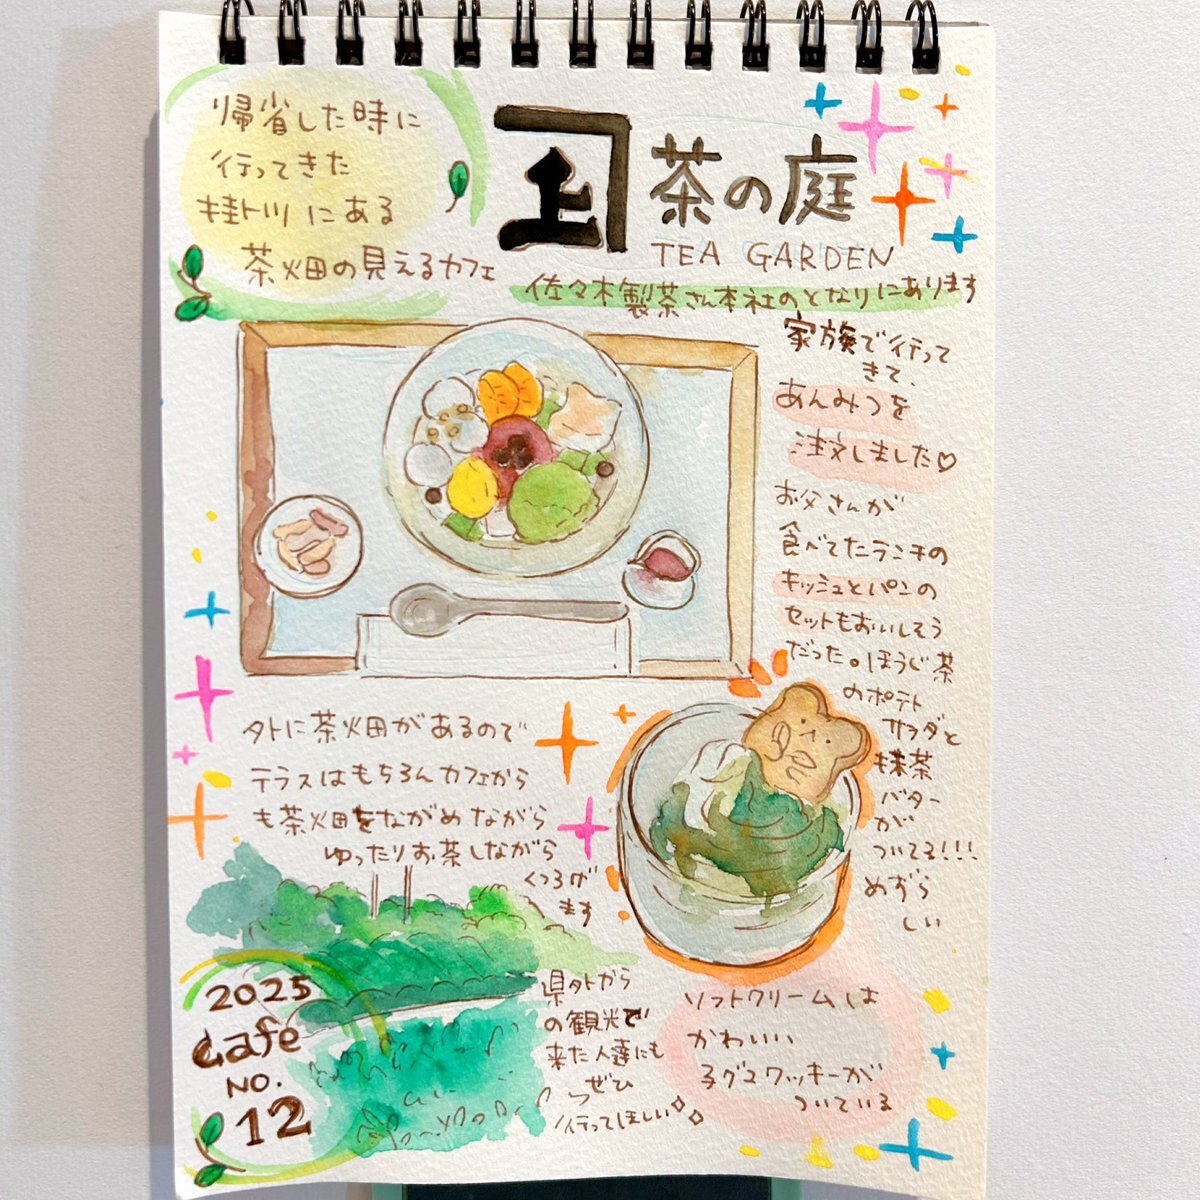 帰省した時に
行ってきた
掛川にある
茶畑の見えるカフェ
茶の庭
TEA GARDEN
佐々木製茶さん本社のとなりにあります
家族で行って
きて、
あんみつを
注文しました♡
お父さんが
食べてたランチの
キッシュとパンの
セットもおいしそう
だった。ほうじ茶
のポテト
サラダと
抹茶
バター
が
ついてる!!!
めずら
しい
外に茶畑があるので
テラスはもちろんカフェから
も茶畑をながめながら
ゆったりお茶しながら
くつろげ
ます
2025
Cafe
NO.
12
県外から
の観光で
来た人達にも
ぜひ
行ってほしい
ソフトクリームは
かわいい
子グマクッキーが
ついている